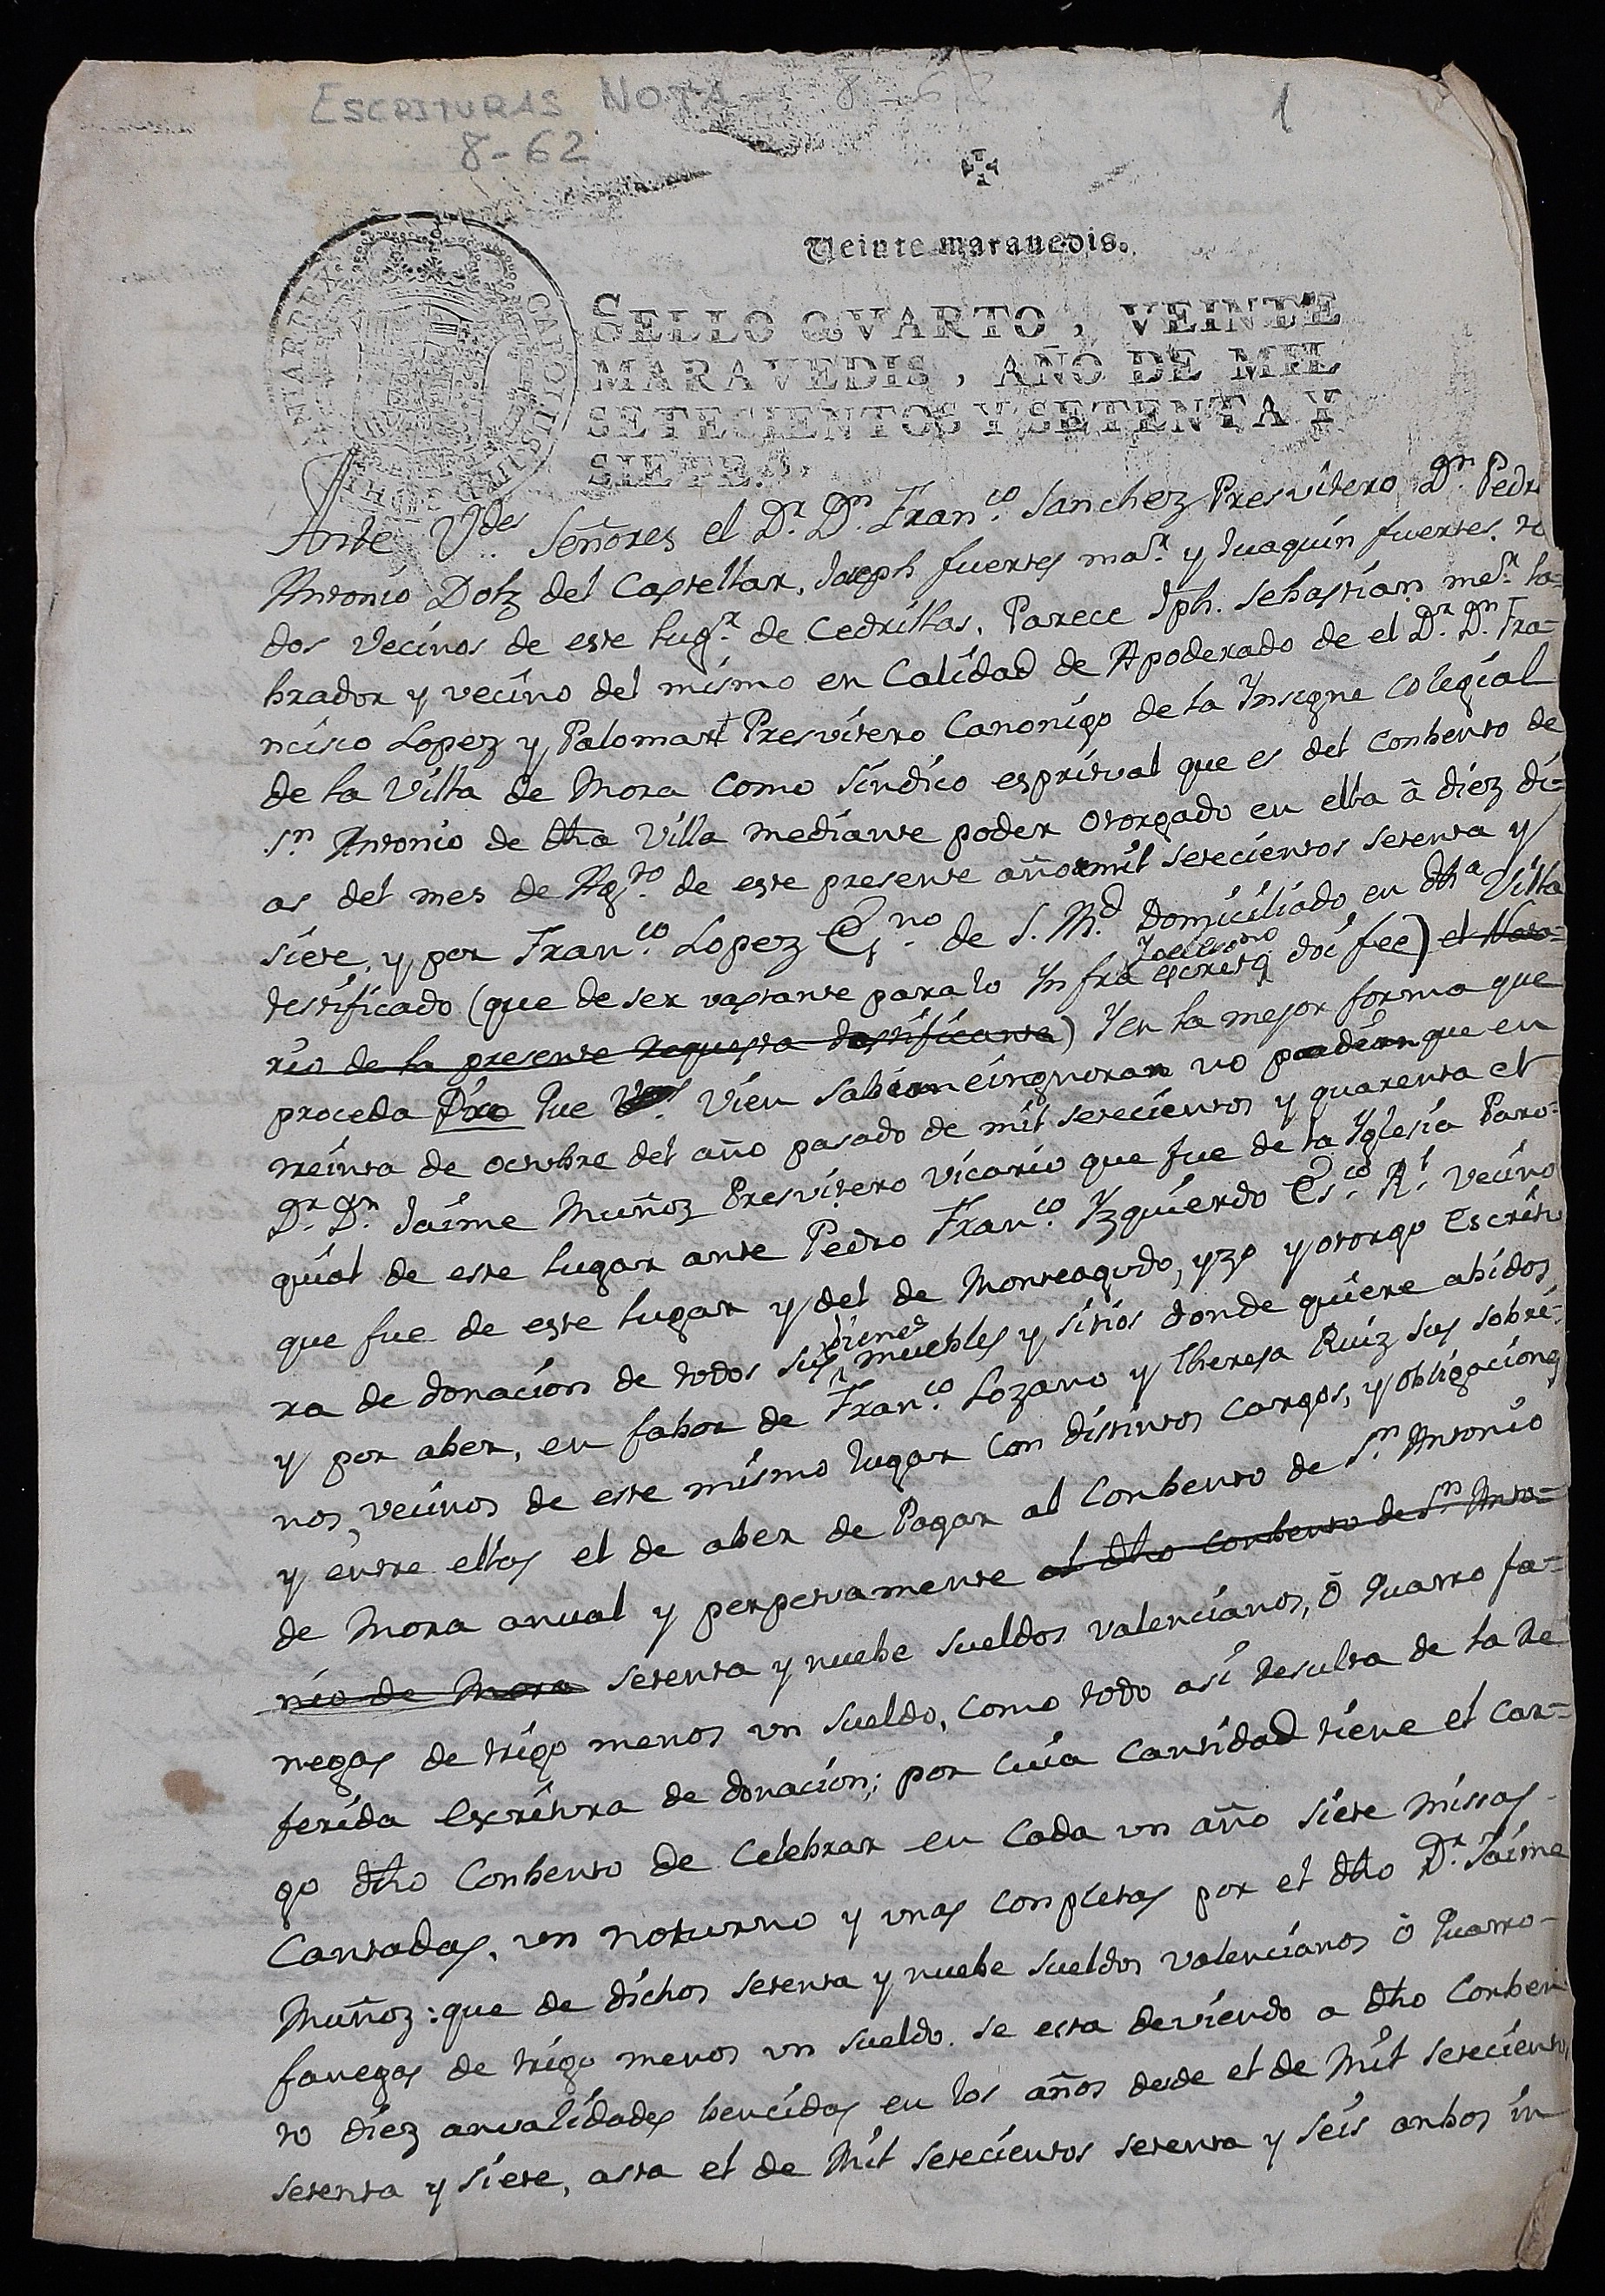 ESCRITURAS NOTA 8-62
8-62
1
Veinte maravedis.
SELLO QVARTO, VEINTE
MARAVEDIS, AÑO DE MIL
SETECIENTOS Y SETENTA Y
SIETE.
CAROLUS III D G HISP
REX
Ante Vdes Señores el Dr. Dn. Franco. Sanchez Presvitero Dn. Pedro
Antonio Dolz del Castellar, Joseph fuertes mar. y Juaquin fuertes, to
dos vecinos de este lugr. de Cedrillas, Parece Jph. Sebastian mer. la=
brador y vecino del mismo en Calidad de Apoderado de el Dr. Dn. Fra=
ncisco Lopez y Palomar Presvitero Canonigo de la Ynsigne Colegial
de la Villa de Mora como sindico espritual que es del Conbento de
Sn. Antonio de dha Villa mediante poder otorgado en ella â diez di=
as del mes de Agto. de este presente año mil setecientos setenta y
siete, y por Franco. Lopez Esno. de S. Md. Domiciliado en dha Villa
testificado (que de ser vastante para lo Ynfra escrito doi fee) el Nota=
rio de la presente requesta testificante) Y en la mejor forma que
proceda Dixo Que Vien sabian e ingnorar no podian que en
treinta de octubre del año pasado de mil setecientos y quarenta el
Dr. Dn. Jaime Muñoz Presvitero Vicario que fue de la Yglesia Paro=
quial de este lugar ante Pedro Franco. Yzquierdo Esco. Rl. vecino
que fue de este lugar y del de Monteagudo, yzo y otorgo Escritu
ra de donacion de todos sus bienes muebles y sitios donde quiere abidos,
y por aber, en fabor de Franco. Lozano y Theresa Ruiz sus sobri=
nos, vecinos de este mismo lugar con distintos cargos, y obligaciones
y entre ellas el de aber de Pagar al Conbento de Sn. Antonio
de Mora anual y perpetuamente al dho conbento de Sn. Anto=
nio de Mora setenta y nuebe sueldos valencianos, ô quatro fa=
negas de trigo menos un sueldo, como todo asi resulta de la re
ferida escritura de donacion; por cuia cantidad tiene el car=
go dho Conbento de Celebrar en cada un año siete missas
Cantadas, un noturno y unas completas por el dho Dr. Jaime
Muñoz: que de dichos setenta y nuebe sueldos valencianos ô quatro
fanegas de trigo menos un sueldo. se esta deviendo a dho Conben
to diez anualidades bencidas en los años desde el de Mil setecientos
setenta y siete, asta el de Mil setecientos setenta y seis anbos in